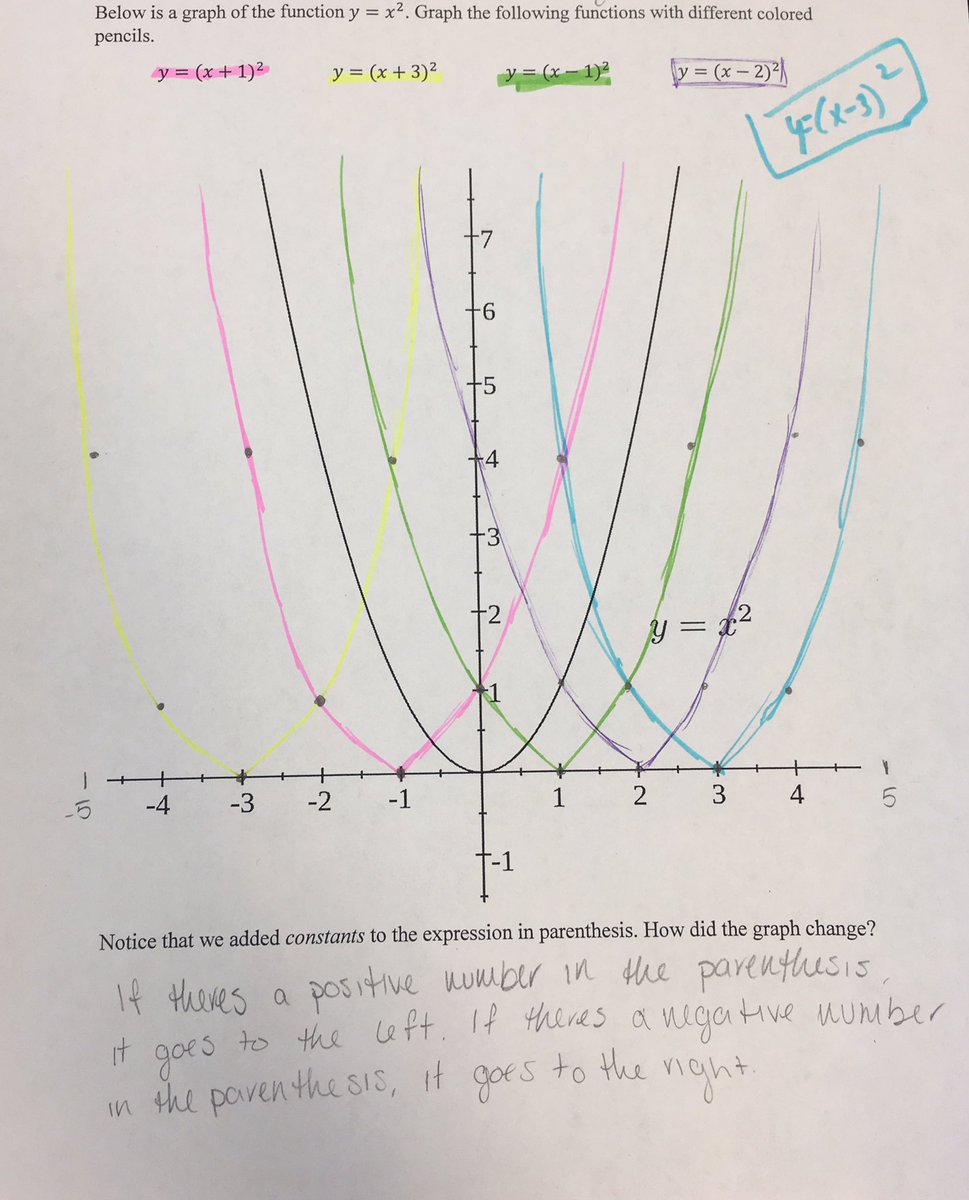 Below is a graph of the function y = x². Graph the following functions with different colored
pencils.
y = (x + 1)² y = (x + 3)² y = (x – 1)² y = (x – 2)²
y=(x-3)²
7
6
5
4
3
2
y = x²
1
-5 -4 -3 -2 -1 1 2 3 4 5
-1
Notice that we added constants to the expression in parenthesis. How did the graph change?
If theres a positive number in the parenthesis,
it goes to the left. If theres a negative number
in the parenthesis, it goes to the right.